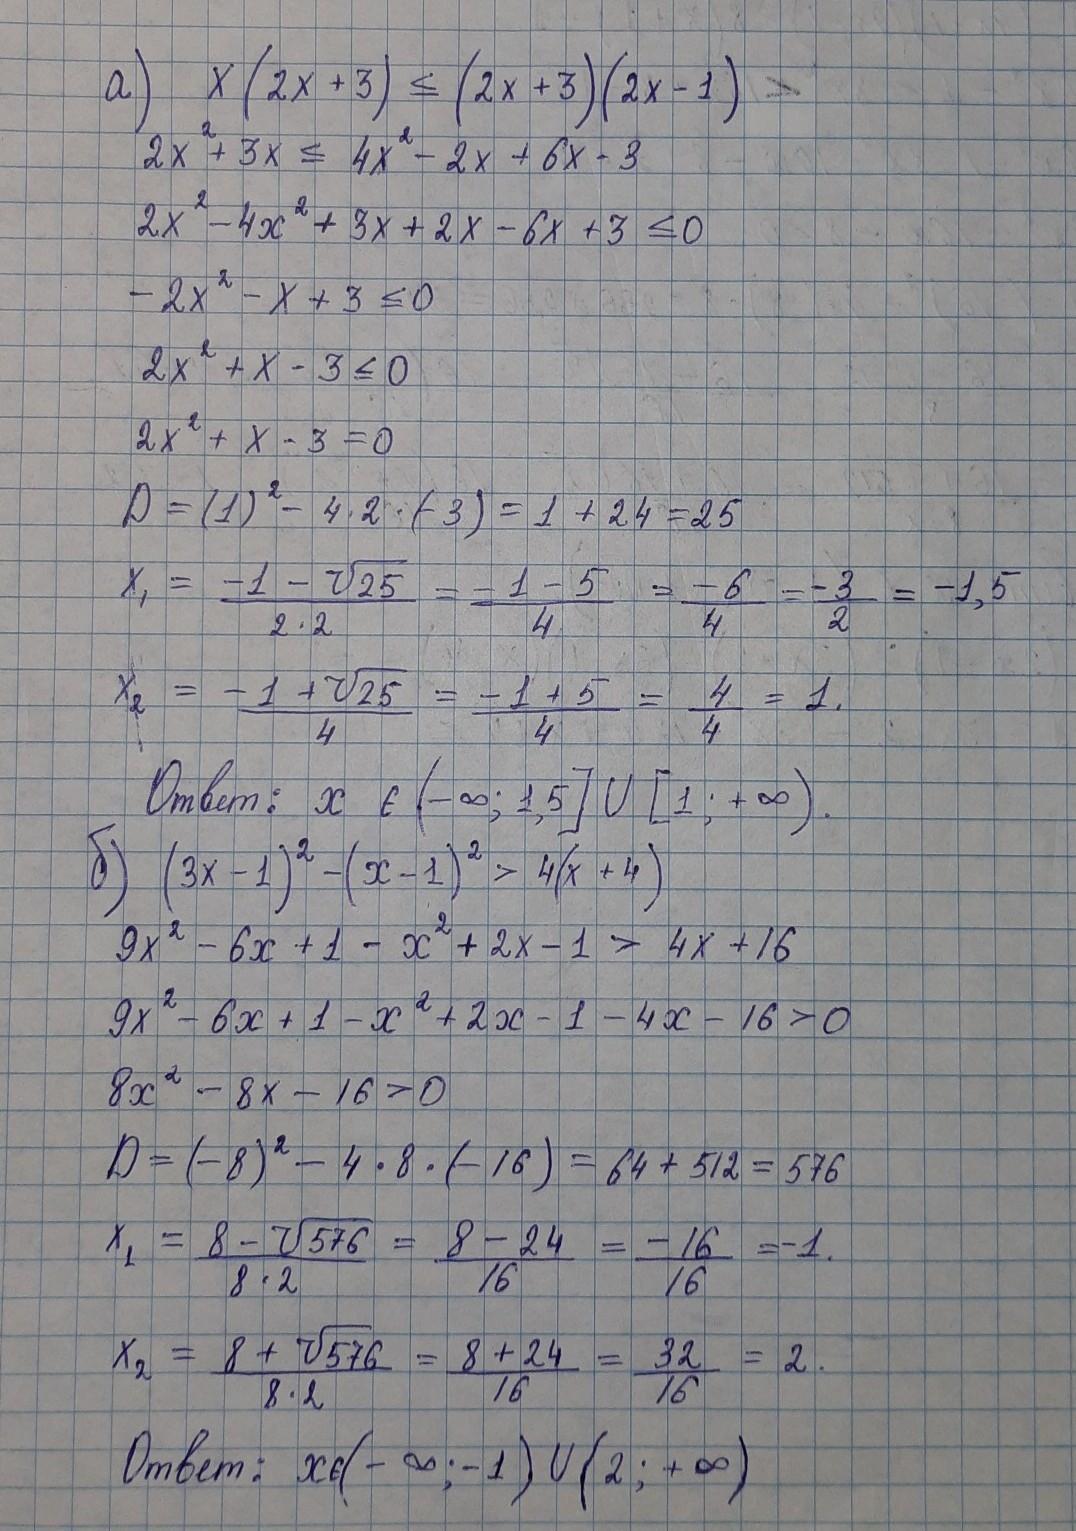 а) x(2x+3) ≤ (2x+3)(2x-1)
2x²+3x ≤ 4x²-2x+6x-3
2x²-4x²+3x+2x-6x+3 ≤0
-2x²-x+3 ≤0
2x²+x-3 ≤0
2x²+x-3=0
D=(1)²-4·2·(-3)=1+24=25
x₁ = (-1-√25)/(2·2) = (-1-5)/4 = -6/4 = -3/2 = -1,5
x₂ = (-1+√25)/4 = (-1+5)/4 = 4/4 = 1.
Ответ: x ∈ (-∞; 1,5] ∪ [1; +∞).
б) (3x-1)²-(x-1)² > 4(x+4)
9x²-6x+1-x²+2x-1 > 4x+16
9x²-6x+1-x²+2x-1-4x-16>0
8x²-8x-16>0
D=(-8)²-4·8·(-16)=64+512=576
x₁ = (8-√576)/(8·2) = (8-24)/16 = -16/16 = -1.
x₂ = (8+√576)/(8·2) = (8+24)/16 = 32/16 = 2.
Ответ: x∈(-∞;-1)∪(2;+∞)